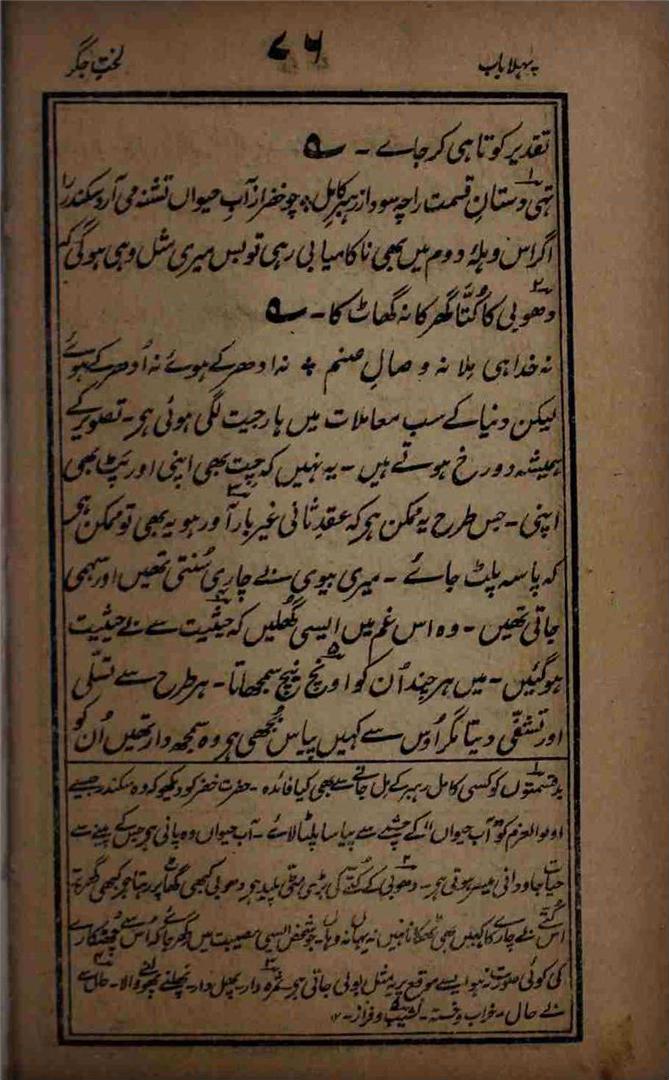 پہلا باب ۷۶ لختِ جگر
تقدیر کوتاہی کر جاے ۔ ؎
تہی دستانِ قسمت را چہ سود از رہبرِ کامل ٭ چو خضر از آبِ حیواں تشنہ می آرد سکندر را
اگر اس وہلۂ دوم میں بھی ناکامیابی رہی تو بس میری مثل وہی ہوگی کہ
دھوبی کا کُتّا گھر کا نہ گھاٹ کا ۔ ؎
نہ خدا ہی مِلا نہ وصالِ صنم ٭ نہ ادھر کے ہوئے نہ اُدھر کے ہوئے
لیکن دنیا کے سب معاملات میں ہار جیت لگی ہوئی ہو ۔ تصویر کے
ہمیشہ دو رخ ہوتے ہیں ۔ یہ نہیں کہ چِت بھی اپنی اور پَٹ بھی
اپنی ۔ جس طرح یہ ممکن ہو کہ عقدِ ثانی غیر بار آور ہو یہ بھی تو ممکن ہو
کہ پاسہ پلٹ جائے ۔ میری بیوی بے چاری سُنتی تھیں اور سہمی
جاتی تھیں ۔ وہ اس غم میں ایسی گھُلیں کہ حیثیت سے بے حیثیت
ہوگئیں ۔ میں ہر چند اُن کو اونچ نیچ سمجھاتا ۔ ہر طرح سے تسلّی
اور تشفّی دیتا مگر اُوس سے کہیں پیاس بُجھی ہو وہ سمجھ دار تھیں اُن کو
۱ بدقسمتوں کو کسی کامل رہبر کے مل جانے سے بھی کیا فائدہ ۔ حضرت خضر کو دیکھو کہ وہ سکندر جیسے
اولوالعزم کو "آب حیواں" کے چشمے سے پیاسا پلٹا لائے ۔ آب حیواں وہ پانی ہو جس کے پینے سے
حیات جاودانی میسر ہوتی ہو ۔ ۲ دھوبی کے کتّے کی بڑی مٹی پلید ہو دھوبی کبھی گھاٹ پر رہتا ہو کبھی گھر پر
اس کُتّے بے چارے کا کہیں بھی ٹھکانا نہیں نہ یہاں نہ وہاں ۔ جو شخص ایسی مصیبت میں گھر جائے کہ اُس سے چھٹکارے
کی کوئی صورت نہ ہو ایسے موقع پر یہ مثل بولی جاتی ہو ۔ ۳ ثمرہ دار ۔ پھل دار ۔ پھلنے پھولنے والا ۔ ۴ حال سے
بے حال ۔ خراب و خستہ ۔ ۵ نشیب و فراز ۔ ۱۲